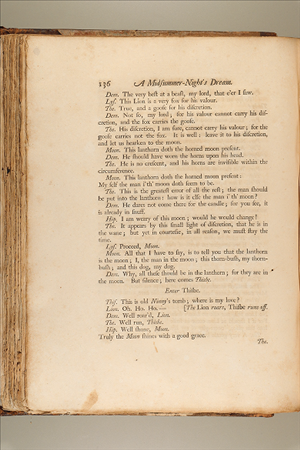 136 A Midsummer-Night's Dream.
Dem. The very best at a beast, my lord, that e'er I saw.
Lys. This Lion is a very fox for his valour.
The. True, and a goose for his discretion.
Dem. Not so, my lord; for his valour cannot carry his dis-
cretion, and the fox carries the goose.
The. His discretion, I am sure, cannot carry his valour; for the
goose carries not the fox. It is well: leave it to his discretion,
and let us hearken to the moon.
Moon. This lanthorn doth the horned moon present.
Dem. He should have worn the horns upon his head.
The. He is no crescent, and his horns are invisible within the
circumference.
Moon. This lanthorn doth the horned moon present:
My self the man i'th' moon doth seem to be.
The. This is the greatest error of all the rest; the man should
be put into the lanthorn: how is it else the man i' th' moon?
Dem. He dares not come there for the candle; for you see, it
is already in snuff.
Hip. I am weary of this moon; would he would change!
The. It appears by this small light of discretion, that he is in
the wane; but yet in courtesie, in all reason, we must stay the
time.
Lys. Proceed, Moon.
Moon. All that I have to say, is to tell you that the lanthorn
is the moon; I, the man in the moon; this thorn-bush, my thorn-
bush; and this dog, my dog.
Dem. Why, all these should be in the lanthorn; for they are in
the moon. But silence; here comes Thisbe.
Enter Thisbe.
Thisf. This is old Ninny's tomb; where is my love?
Lion. Oh. Ho. Ho.— [The Lion roars, Thisbe runs off.
Dem. Well roar'd, Lion.
The. Well run, Thisbe.
Hip. Well shone, Moon.
Truly the Moon shines with a good grace.
The.